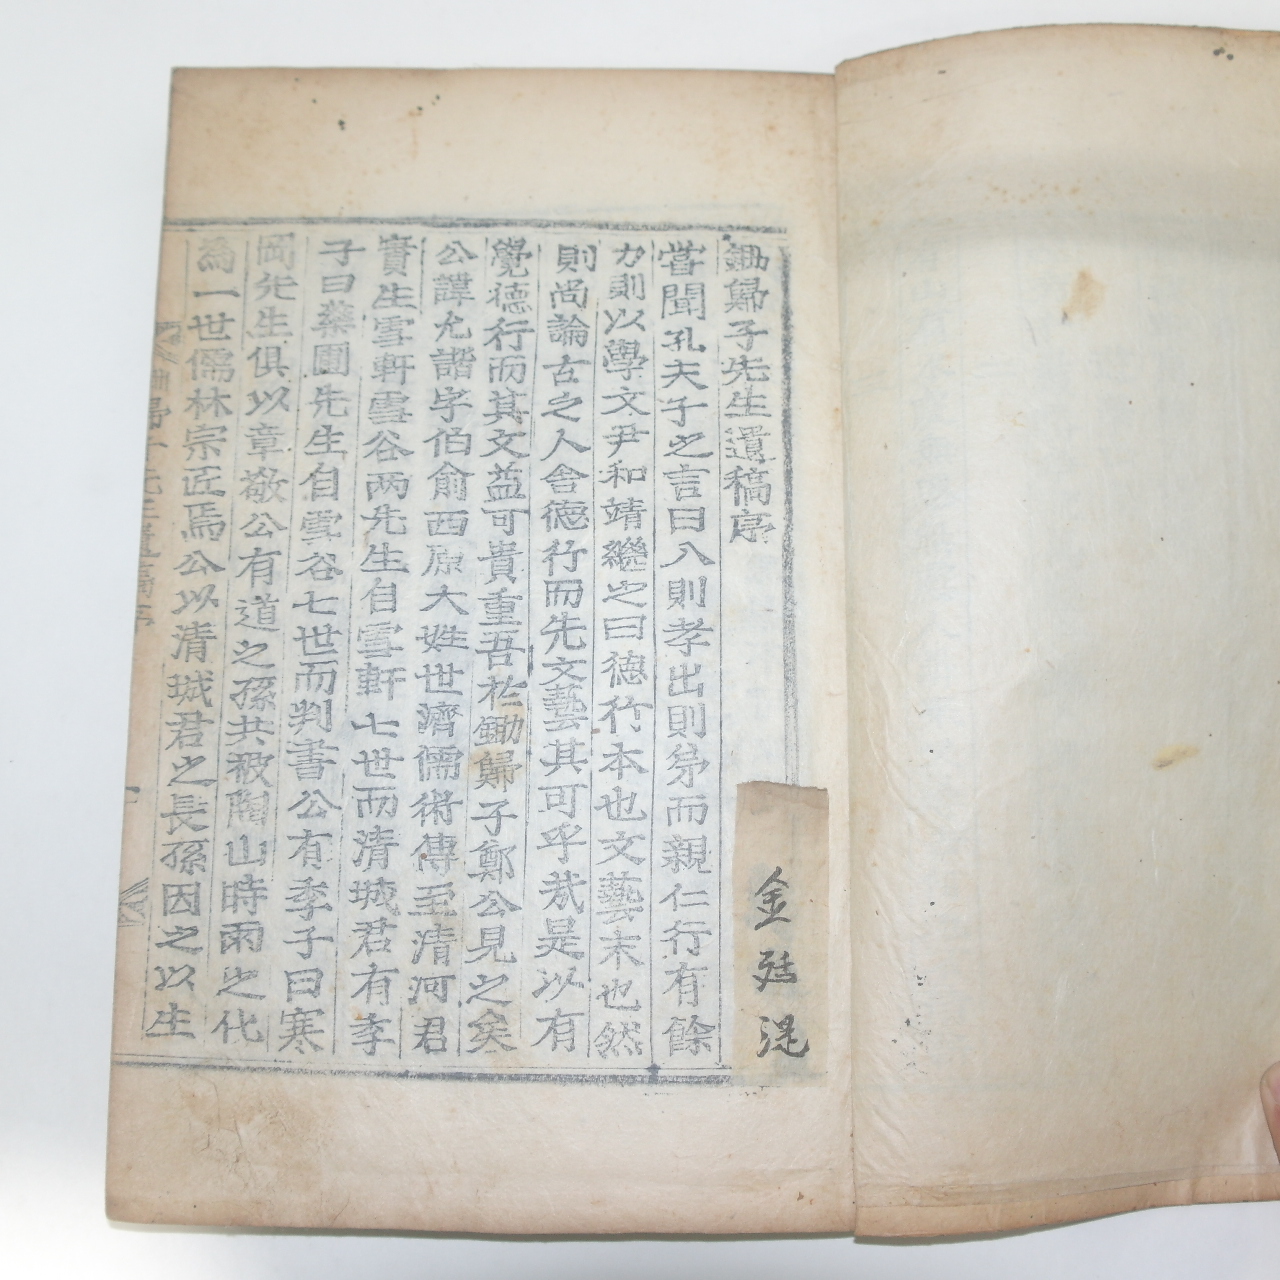 鋤歸子先生遺稿序
嘗聞孔夫子之言曰入則孝出則弟而親仁行有餘
力則以學文尹和靖繼之曰德行本也文藝末也然
則尚論古之人舍德行而先文藝其可乎哉是以有
覺德行而其文益可貴重吾於鋤歸子鄭公見之矣
公諱允諧字伯俞西原大姓世濟儒術傳至清河君
實生雪軒雪谷两先生自雪軒七世而清城君有李
子曰藥圃先生自雪谷七世而判書公有季子曰寒
岡先生俱以章敬公有道之孫共被陶山時雨之化
為一世儒林宗匠焉公以清城君之長孫因之以生
歸子先生遺稿序
金廷湜